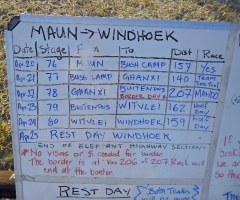 MAUN → WINDHOEK
Date Stage To Dist Race
Apr.20 76 MAUN BUSH CAMP 157 Yes
Apr.21 77 BUSH CAMP GHANXI 140 TEAM
Apr.22 78 GHANXI BUITEPOS BORDER DAY 207 MANDO
Apr.23 79 BUITEPOS WITVLEI 162 Half Day
Apr.24 80 WITVLEI WINDHOEK 159 Half Day
Apr.25 REST DAY WINDHOEK
END OF ELEPHANT HIGHWAY SECTION
* No visas or $ needed for border.
The border is at km 206 of 207. Race will
end at the border.
REST DAY Both Trucks